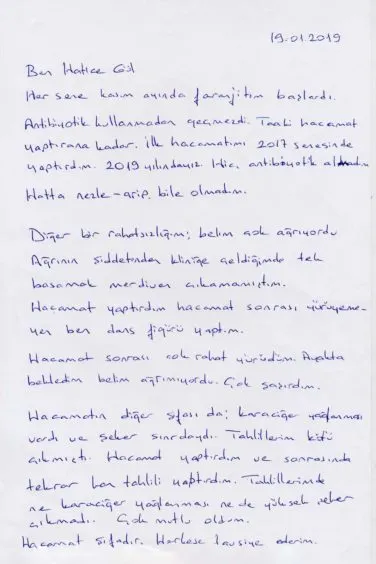 19.01.2019
Ben Hatice Gül
Her sene kasım ayında faranjitim başlardı.
Antibiyotik kullanmadan geçmezdi. Taaki hacamat
yaptırana kadar. İlk hacamatımı 2017 senesinde
yaptırdım. 2019 yılındayız. Hiç antibiyotik almadım
Hatta nezle-grip bile olmadım.
Diğer bir rahatsızlığım; belim çok ağrıyordu
Ağrının şiddetinden kliniğe geldiğimde tek
basamak merdiven çıkamamıştım.
Hacamat yaptırdım hacamat sonrası yürüyeme-
yen ben dans figürü yaptım.
Hacamat sonrası çok rahat yürüdüm. Ayakta
bekledim belim ağrımıyordu. Çok şaşırdım.
Hacamatın diğer şifası da; karaciğer yağlanması
vardı ve şeker sınırdaydı. Tahlillerim kötü
çıkmıştı. Hacamat yaptırdım ve sonrasında
tekrar kan tahlili yaptırdım. Tahlillerimde
ne karaciğer yağlanması ne de yüksek şeker
çıkmadı. Çok mutlu oldum.
Hacamat şifadır. Herkese tavsiye ederim.